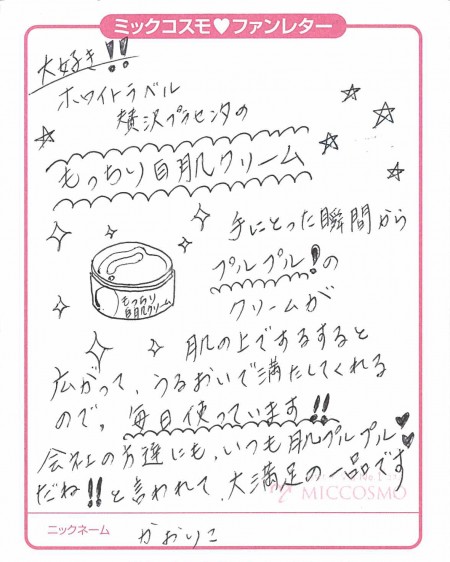 ミックコスモ♥ファンレター
大好き!!
ホワイトラベル
贅沢プラセンタの
もっちり白肌クリーム
手にとった瞬間から
プルプル!の
クリームが
もっちり
白肌クリーム
肌の上でするすると
広がって、うるおいで満たしてくれる
ので、毎日使っています!!
会社の方達にも、いつも肌プルプル♥
だね!!と言われて、大満足の一品です♥
MICCOSMO
ニックネーム
かおりこ